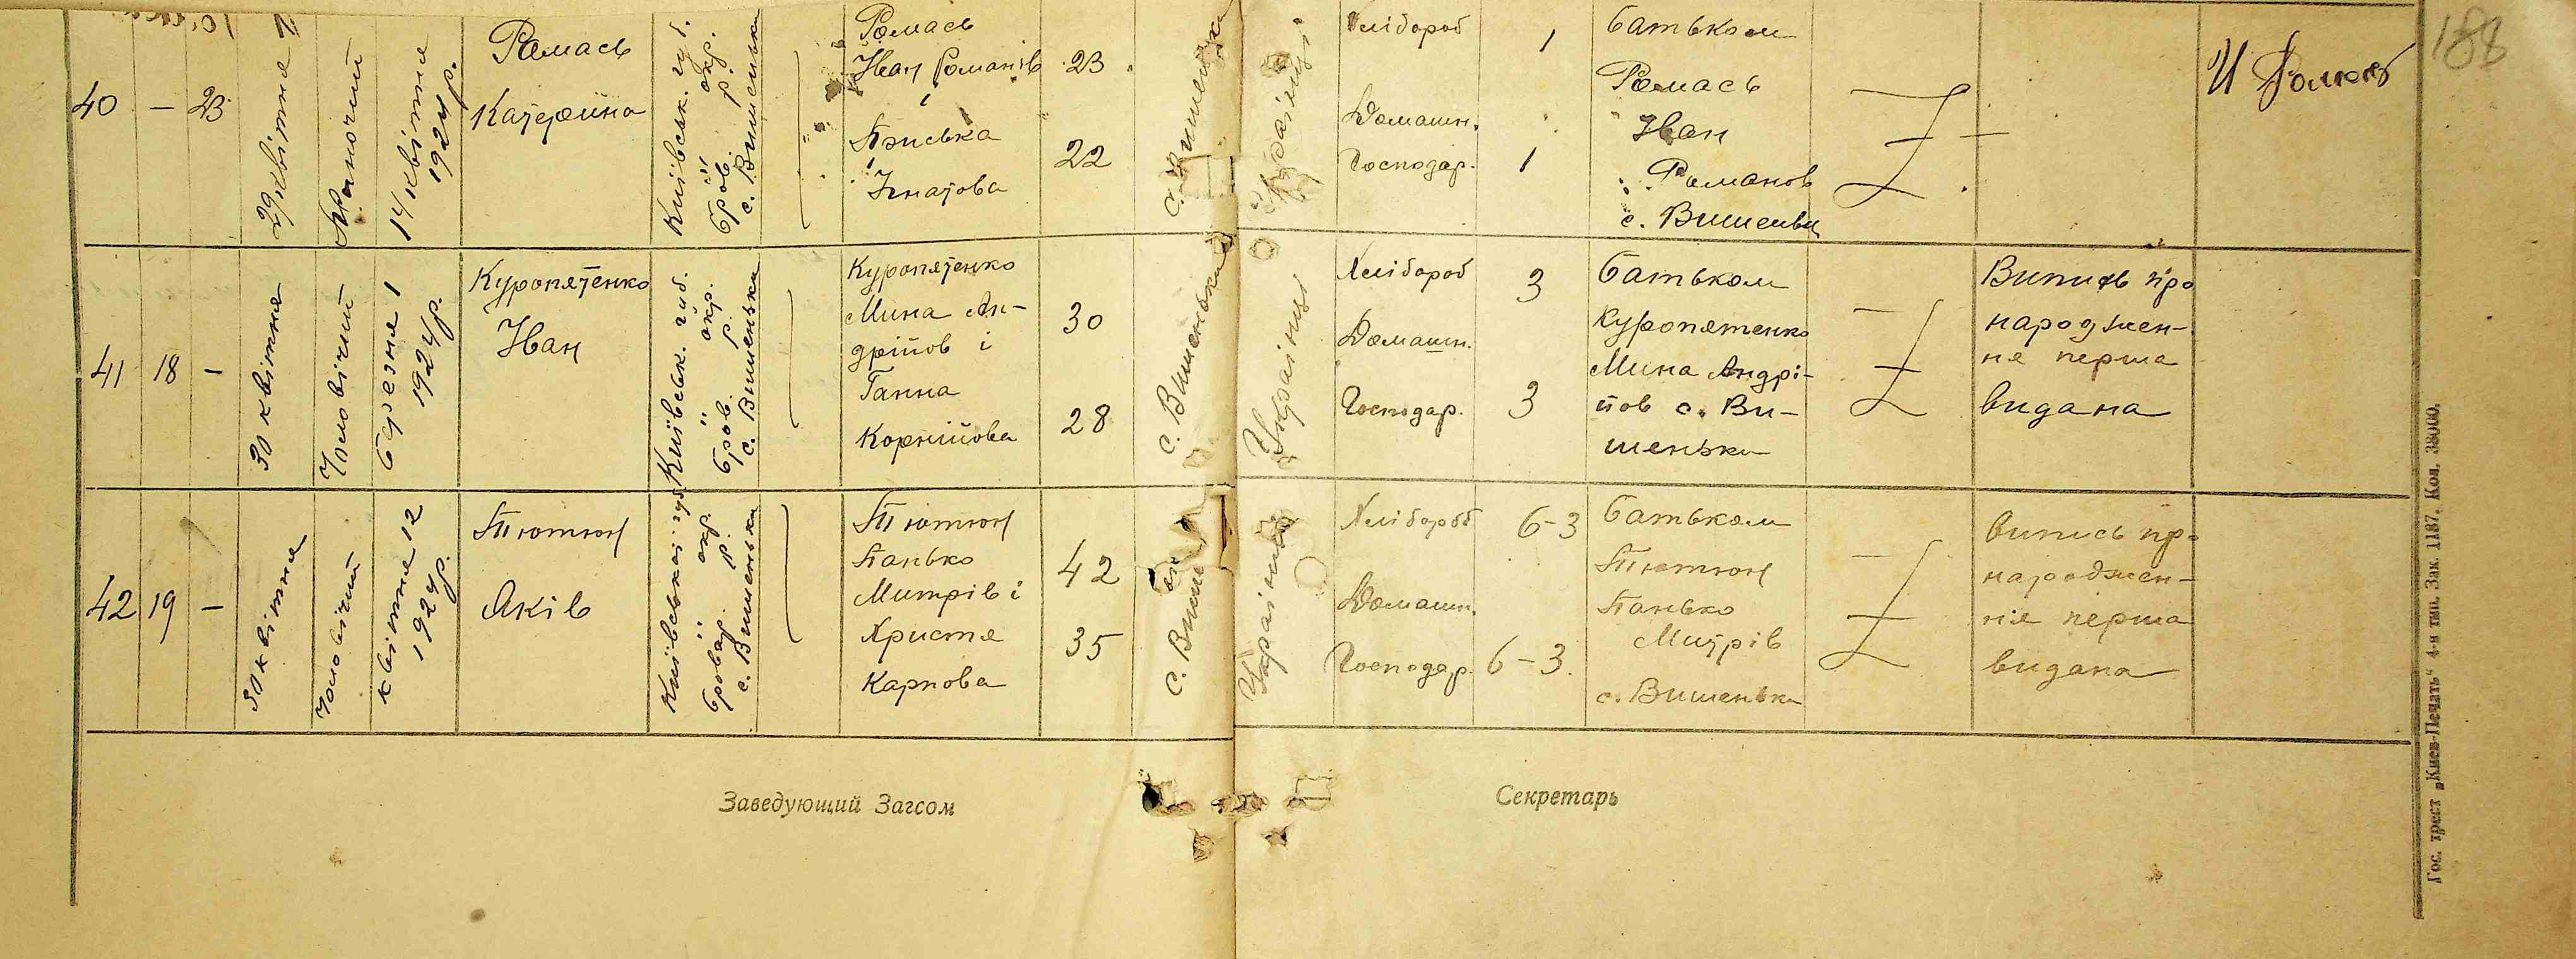 188
40 — 23
29 квітня
Жіночий
14 квітня
1924 р.
Ромась
Катерина
Київськ. губ.
окр.
Бров. р.
с. Вишеньки
Ромась
Іван Романів 23
і
Пріська
Ігнатова 22
с. Вишеньки
Українці
Хлібороб 1
Домашн.
Господар. 1
батьком
Ромась
Іван
Романов
с. Вишеньки
И Ромась
41 18 —
30 квітня
Чоловічий
березня 1
1924 р.
Куропятенко
Іван
Київськ. губ.
окр.
Бров. р.
с. Вишеньки
Куропятенко
Мина Ан-
дріїов і 30
Ганна
Корніїова 28
с. Вишеньки
Українці
Хлібороб 3
Домашн.
Господар. 3
батьком
Куропятенко
Мина Андрі-
йов с. Ви-
шеньки
Випись про
народжен-
ня перша
видана
42 19 —
30 квітня
Чоловічий
квітня 12
1924 р.
Тютюн
Яків
Київської губ.
окр.
Бровар. р.
с. Вишеньки
Тютюн
Панько
Митрів і 42
Христя
Карпова 35
с. Вишеньки
Українці
Хлібороб 6-3
Домашн.
Господар. 6-3.
батьком
Тютюн
Панько
Митрів
с. Вишеньки
випись про
народжен-
ня перша
видана
Заведующий Загсом
Секретарь
Гос. трест „Киев-Печать“ 4-я тип. Зак. 1187. Кол. 38000.